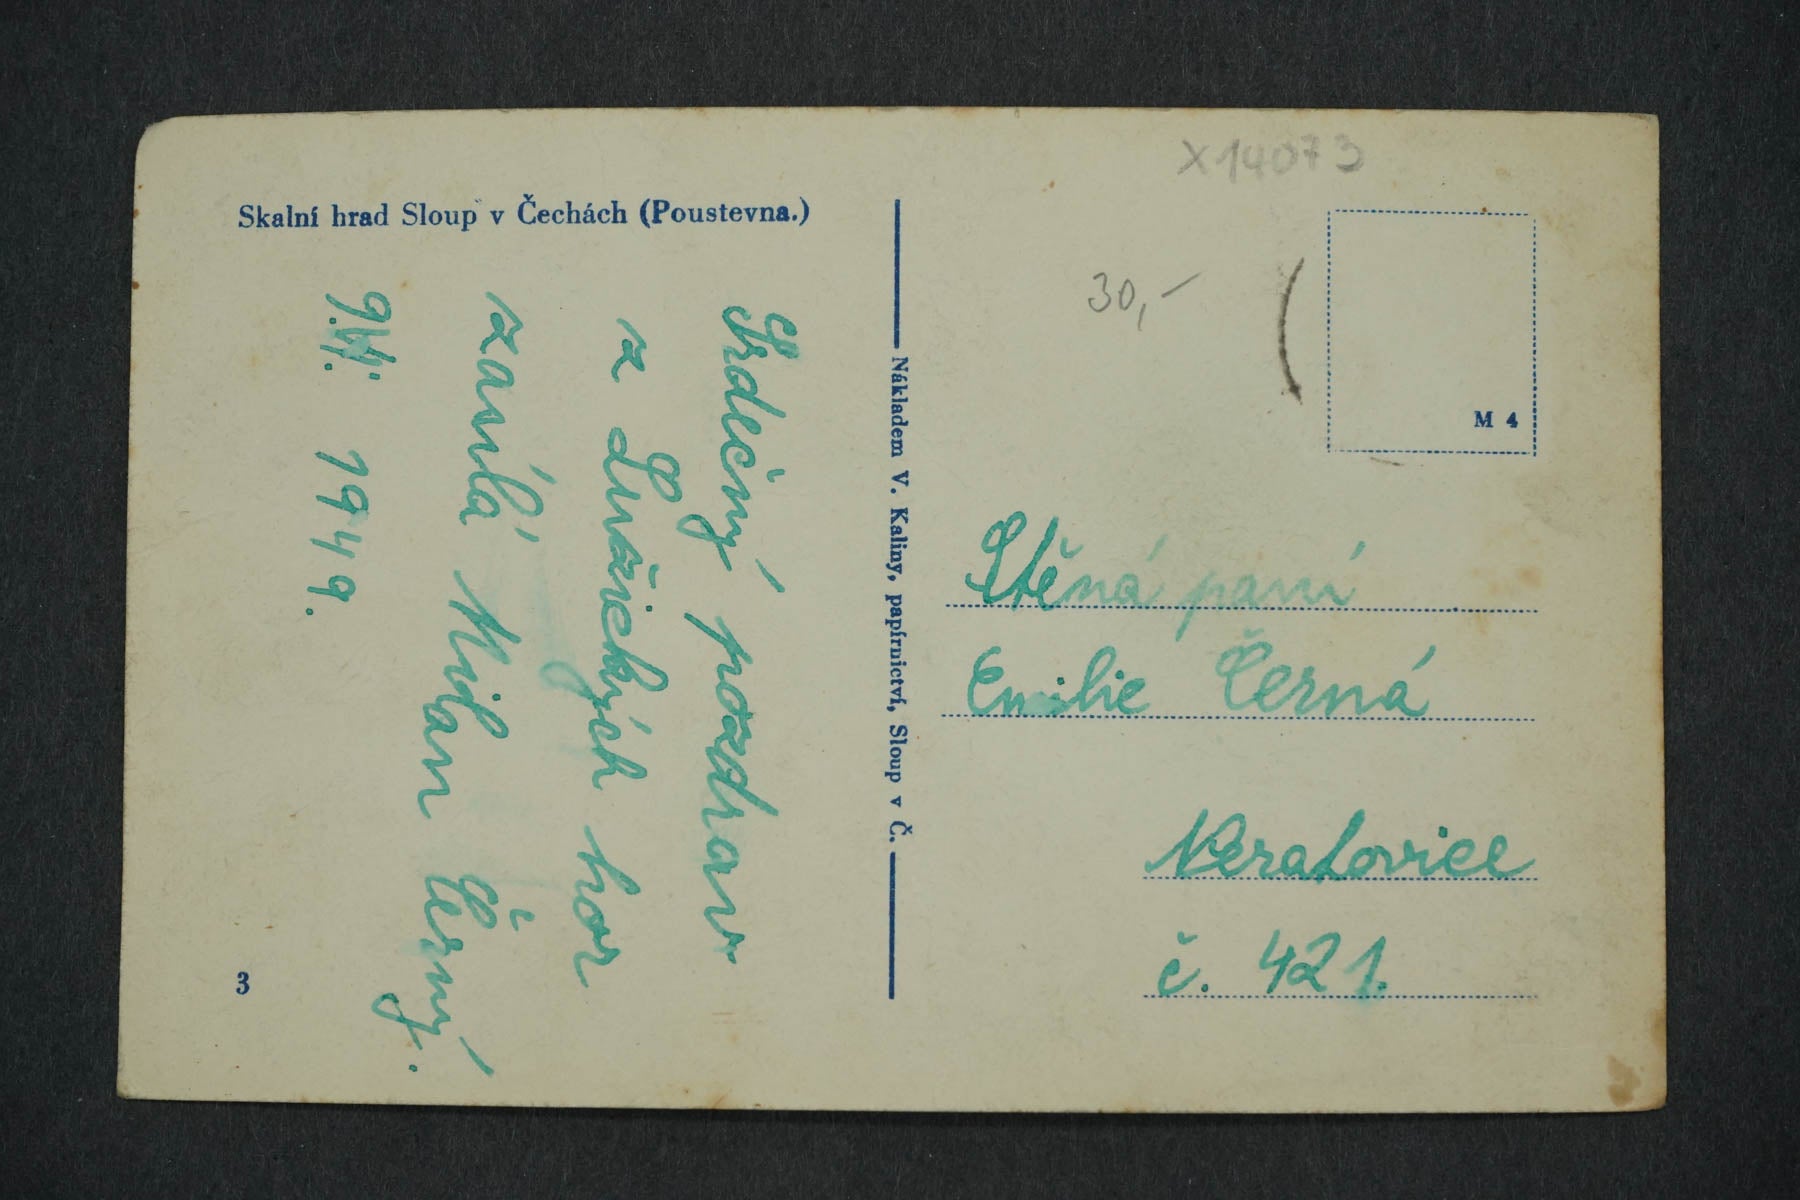 X14073
Skalní hrad Sloup v Čechách (Poustevna.)
Srdečný pozdrav
z Lužických hor
zasílá Milan Černý.
1949.
3
Nákladem V. Kaliny, papírnictví, Sloup v Č.
30,-
M 4
Ctěná paní
Emilie Černá
Neratovice
č. 421.